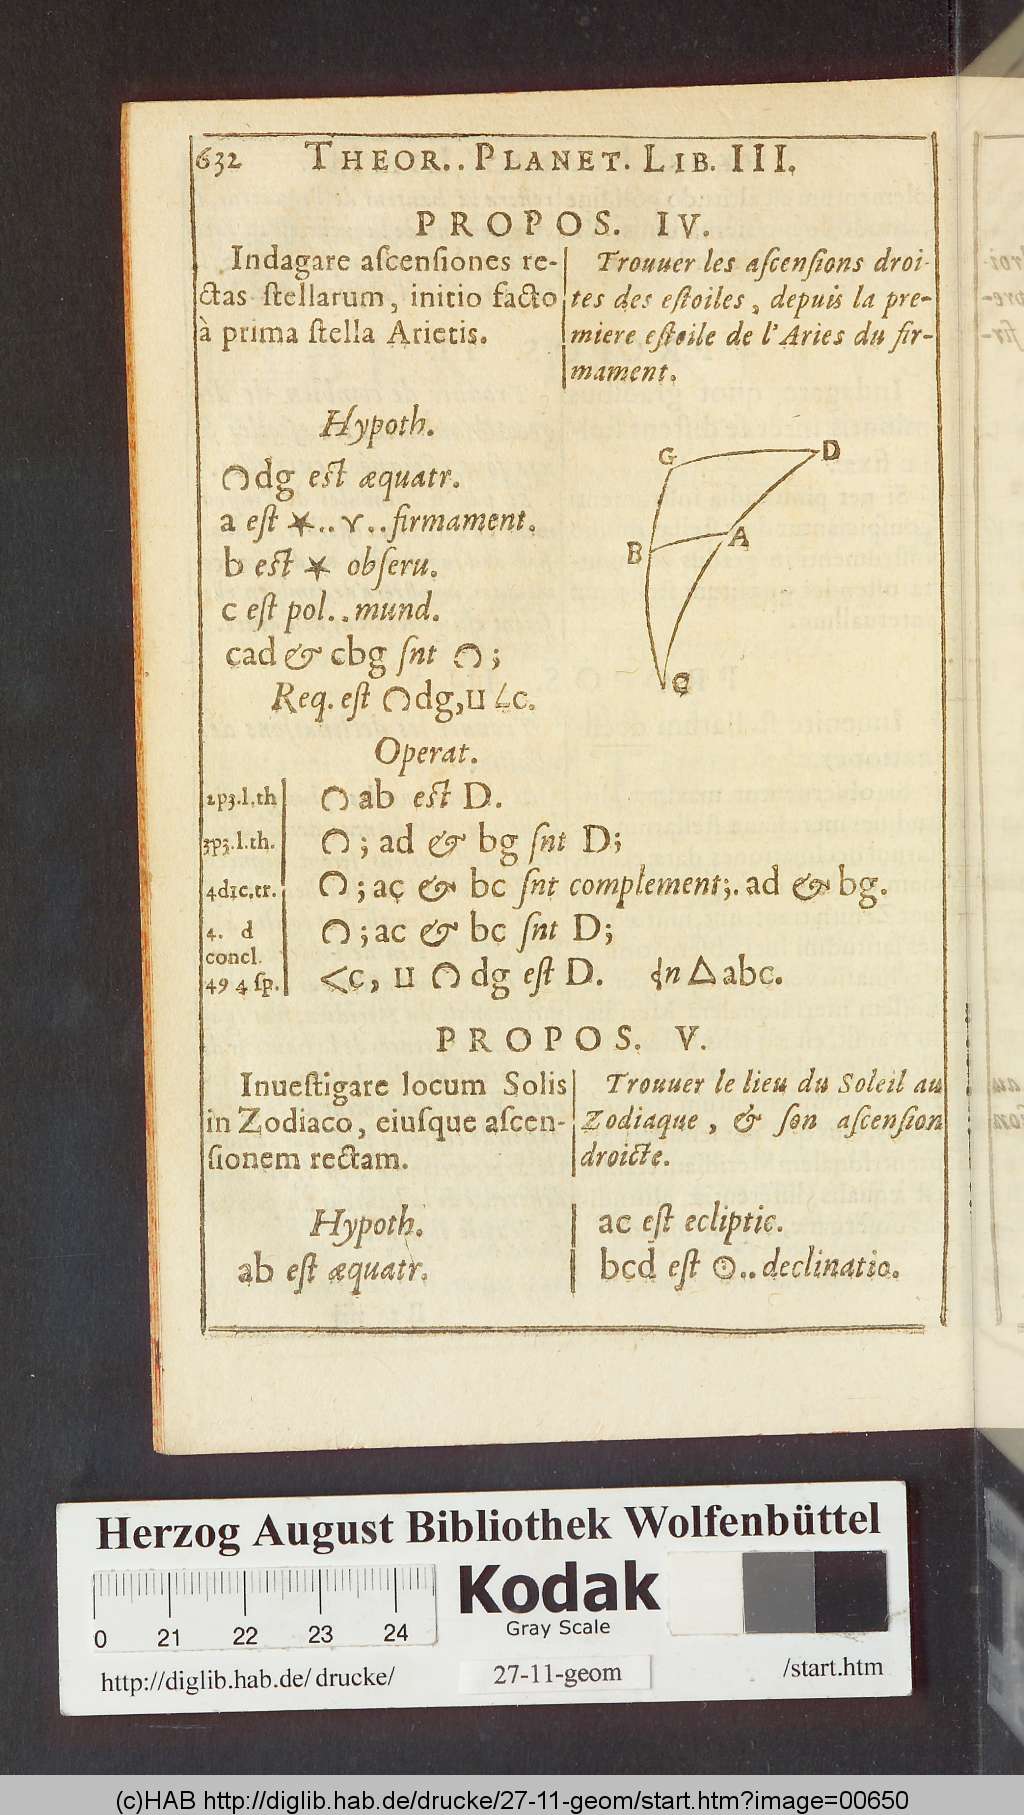 632 THEOR.. PLANET. LIB. III.
PROPOS. IV.
Indagare aſcenſiones re-
ctas ſtellarum, initio facto
à prima ſtella Arietis.
Trouuer les aſcenſions droi-
tes des eſtoiles, depuis la pre-
miere eſtoile de l'Aries du fir-
mament.
Hypoth.
◠dg eſt æquatr.
a eſt ★..♈..firmament.
b eſt ★ obſeru.
c eſt pol..mund.
cad & cbg ſnt ◠;
Req. eſt ◠dg,⊔∠c.
G D
B A
C
Operat.
2p3.l.th ◠ab eſt D.
3p3.l.th. ◠;ad & bg ſnt D;
4d1c.tr. ◠;ac & bc ſnt complement;.ad & bg.
4. d
concl. ◠;ac & bc ſnt D;
49 4 ſp. <c, ⊔ ◠dg eſt D. △abc.
PROPOS. V.
Inueſtigare locum Solis
in Zodiaco, eiuſque aſcen-
ſionem rectam.
Trouuer le lieu du Soleil au
Zodiaque, & ſon aſcenſion
droicte.
Hypoth.
ab eſt æquatr.
ac eſt ecliptic.
bcd eſt ☉..declinatio.
Herzog August Bibliothek Wolfenbüttel
0 21 22 23 24
Kodak
Gray Scale
http://diglib.hab.de/drucke/ 27-11-geom /start.htm
(c)HAB http://diglib.hab.de/drucke/27-11-geom/start.htm?image=00650